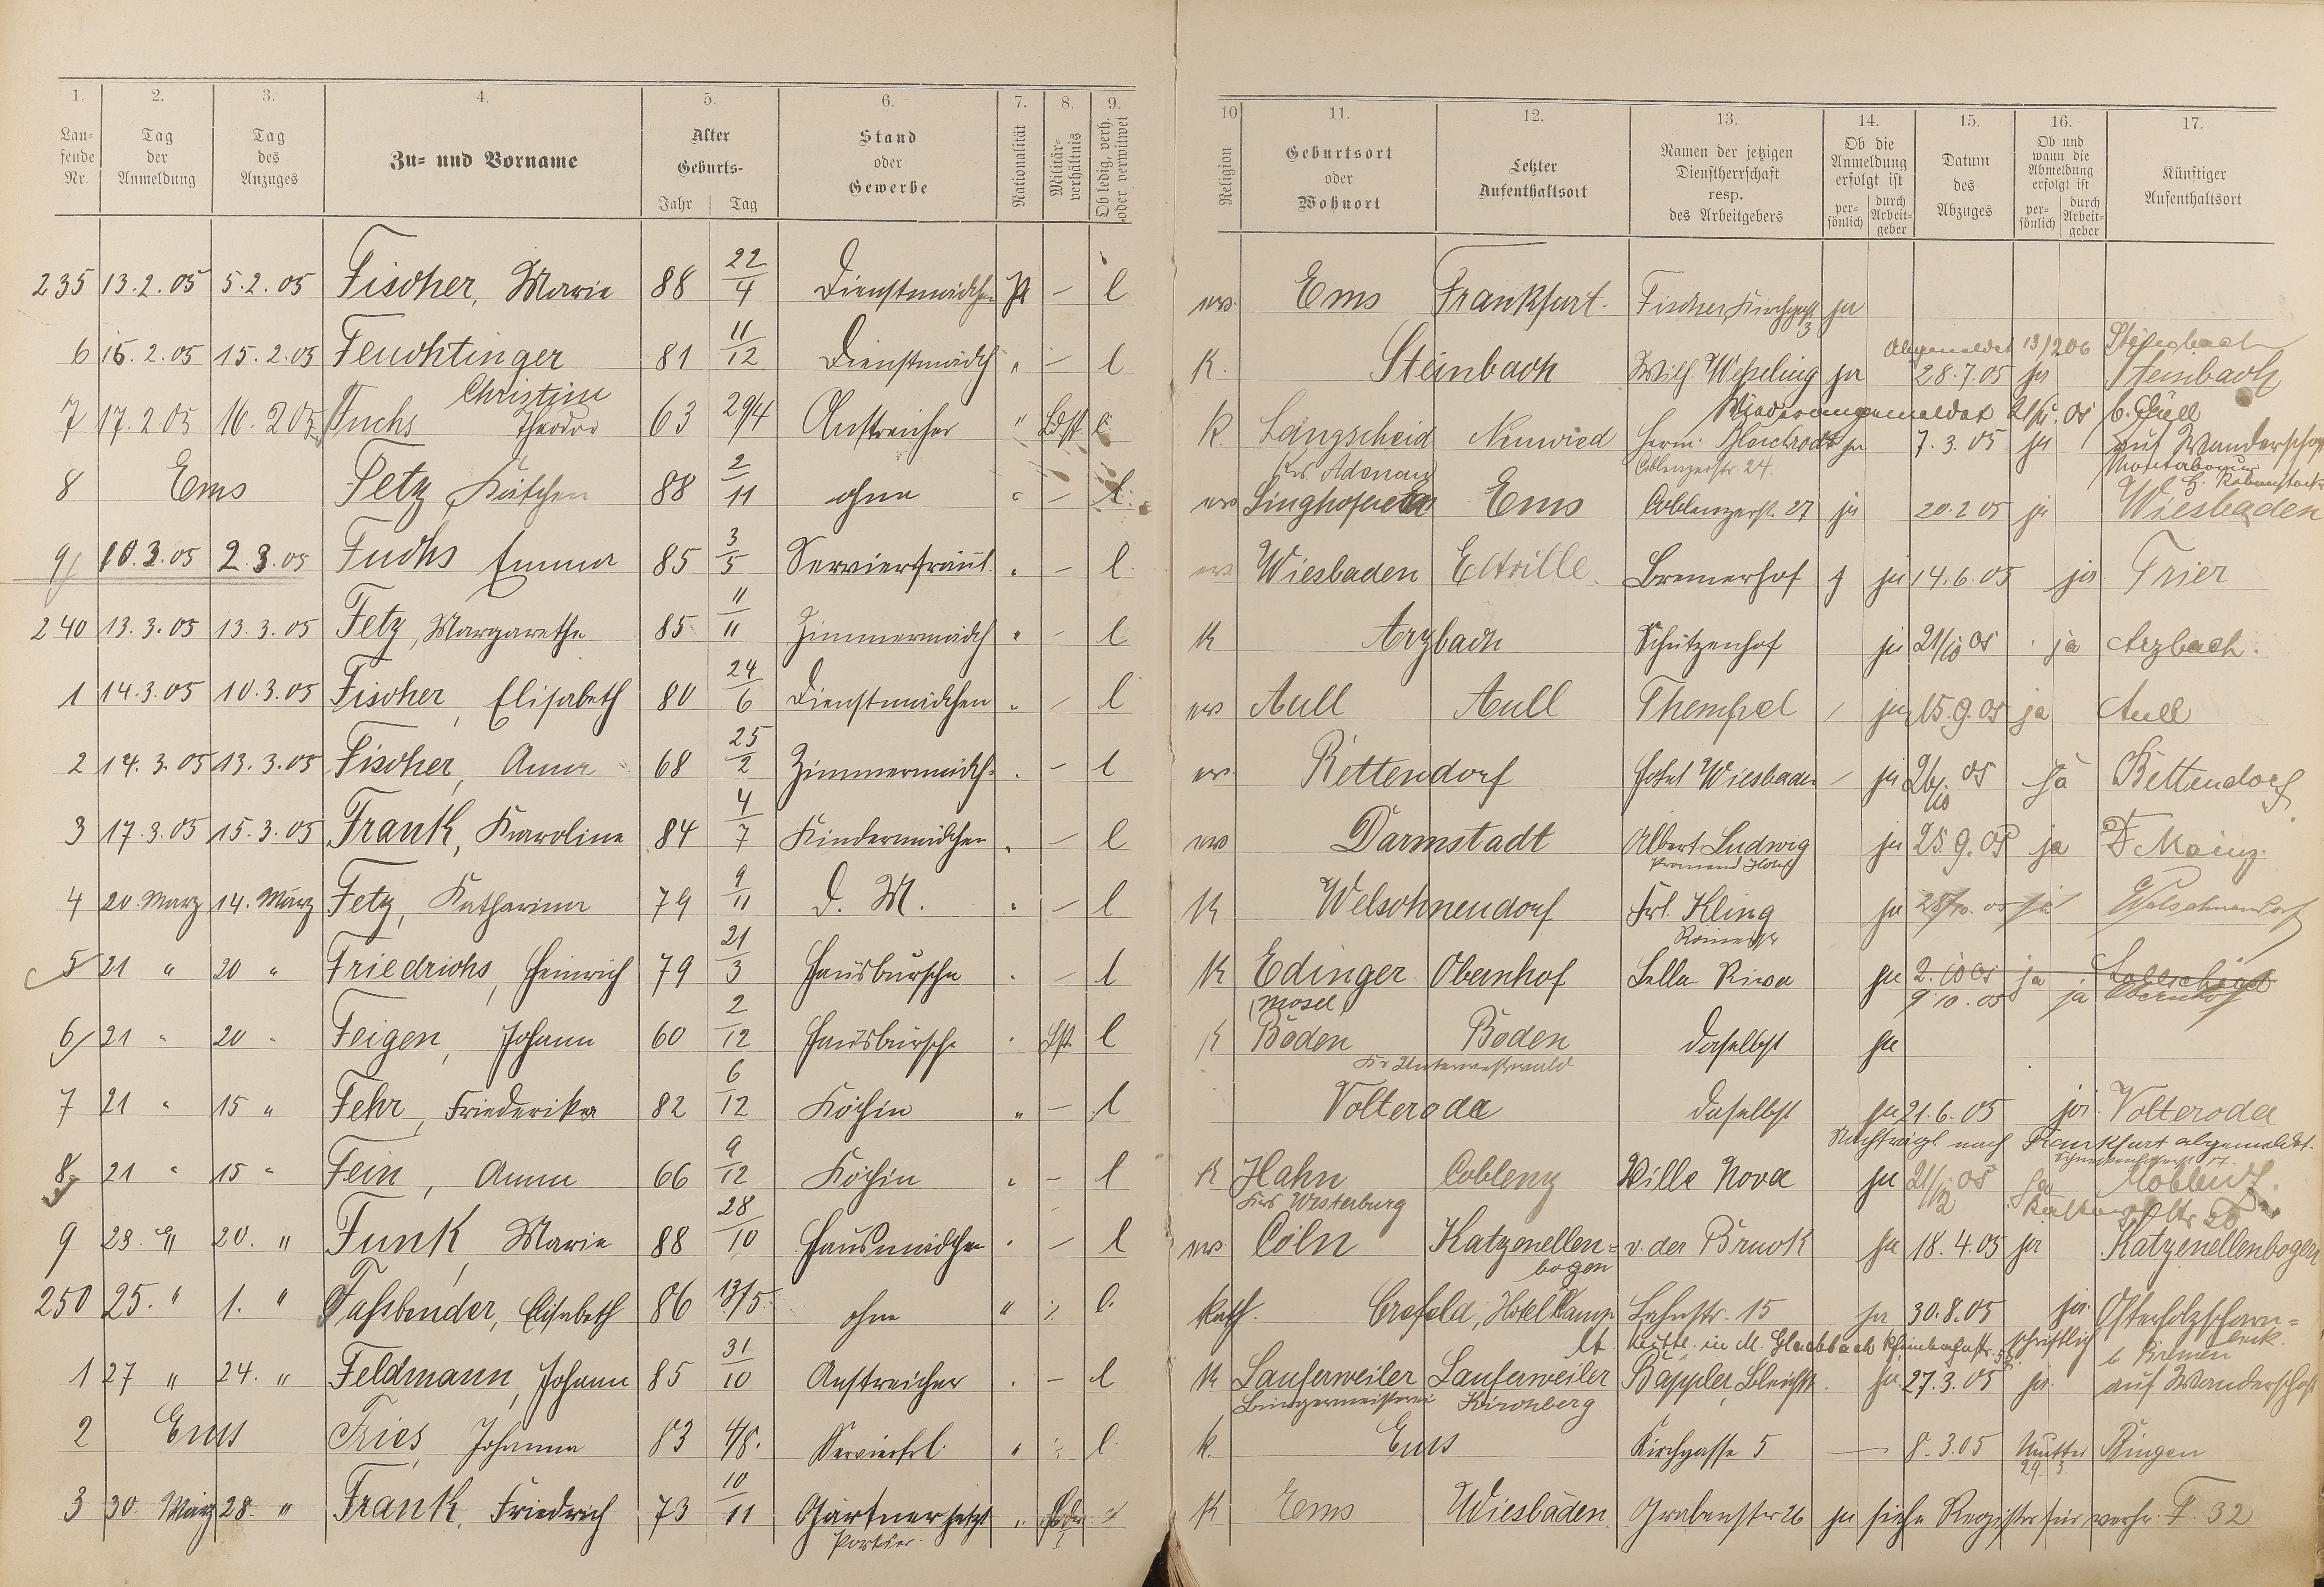 1. 2. 3. 4. 5. 6. 7. 8. 9. 10 11. 12. 13. 14. 15. 16. 17.
Laufende Nr. Tag der Anmeldung Tag des Anzuges Zu- und Vorname Alter Geburts- Jahr Tag Stand oder Gewerbe Nationalität Militärverhältnis Ob ledig, verh. oder verwitwet Religion Geburtsort oder Wohnort Letzter Aufenthaltsort Namen der jetzigen Dienstherrschaft resp. des Arbeitgebers Ob die Anmeldung erfolgt ist persönlich durch Arbeitgeber Datum des Abzuges Ob und wann die Abmeldung erfolgt ist persönlich durch Arbeitgeber Künftiger Aufenthaltsort
235 13.2.05 5.2.05 Fischer, Marie 88 22/4 Dienstmädchen — l Ems Frankfurt. Fischer, Kirchgasse 3 ja
Abgemeldet 13/2 06 Steinbach
6 15.2.05 15.2.05 Feuchtinger Christine 81 11/12 Dienstmädch " — l K. Steinbach Wilh. Wesseling ja 28.7.05 ja Steinbach
Wiederangemeldet
7 17.2.05 16.2.05 Fuchs Theodor 63 29/4 Anstreicher " Ldst l K. Langscheid Krs Adenau Neuwied Herm. Coblenzerstr. 24. ja 7.3.05 ja auf Wanderschaft
Montabaur
8 Ems Fetz Käthchen 88 2/11 ohne " — l Singhofen Ems Coblenzerst. 27 ja 20.2 05 ja Wiesbaden
9 10.3.05 2.3.05 Fuchs Emma 85 3/5 Servierfräul. " — l Wiesbaden Eltville. Bremerhof ja 14.6.05 ja. Trier
240 13.3.05 13.3.05 Fetz, Margarethe 85 11/11 Zimmermädch " — l K Arzbach Schützenhof ja 21/10 05 ja Arzbach.
1 14.3.05 10.3.05 Fischer, Elisabeth 80 24/6 Dienstmädchen " — l Aull Aull Thempel / ja 15.9.05 ja Aull
2 14.3.05 13.3.05 Fischer, Anna 68 25/2 Zimmermädch. " — l Bettendorf Hotel Wiesbaden — ja 26/10 05 Ja Bettendorf
3 17.3.05 15.3.05 Frank, Karoline 84 4/7 Kindermädchen " — l Darmstadt Albert Ludwig Promenad Hotel ja 25.9.05 ja Mainz.
4 20. März 14. März Fetz, Katharina 79 9/11 D. M. " — l K Welschneudorf Frl. Kling Römerstr ja 28/10.05 ja Welschneudorf
5 21 " 20 " Friedrichs, Heinrich 79 21/3 Hausbursche " — l K Edinger (Mosel Obernhof Bella Riva ja 2.10 05 ja
9 10.05 ja Obernhof
6 21 " 20 " Feigen, Johann 60 2/12 Hausbursche " Lst l K Boden Boden Kr Unterwesterwald daselbst ja
7 21 " 15 " Fehr, Friederika 82 6/12 Köchin " — l Volteroda daselbst ja 21.6.05 ja. Volteroda
Nachträgl nach Frankfurt abgemeldet.
8 21 " 15 " Fein, Anna 66 9/12 Köchin " — l K Hahn Krs Westerburg Coblenz Villa Nova ja 21/12 05 Ja Koblenz.
9 23. " 20. " Funk, Marie 88 28/10 Hausmädchen " — l Cöln Katzenellen=bogen v. der Bruck ja 18.4.05 ja Katzenellenbogen
250 25. " 1. " Fassbender, Elisabeth 86 13/5. ohne " ./. l. kath. Crefeld, Hotel Kamp Lahnstr. 15 ja 30.8.05 ja. Osterholzscharm=beck b Bremen
schriftlich
1 27 " 24. " Feldmann, Johann 85 31/10 Anstreicher " — l K Lauferweiler Lauferweiler Bürgermeisterei Kirchberg Bäppler, Bleichstr. ja 27.3.05 ja. auf Wanderschaft
2 Ems Fries, Johanna 83 4/8. Servierfrl. " ./. l. k. Ems Kirchgasse 5 — 8.3.05 Mutter 29. 3. Bingen
3 30. März 28. " Frank, Friedrich 73 10/11 Gärtner jetzt Portier. " K Ems Wiesbaden Grabenstr 26 ja siehe Register für verh. F. 32